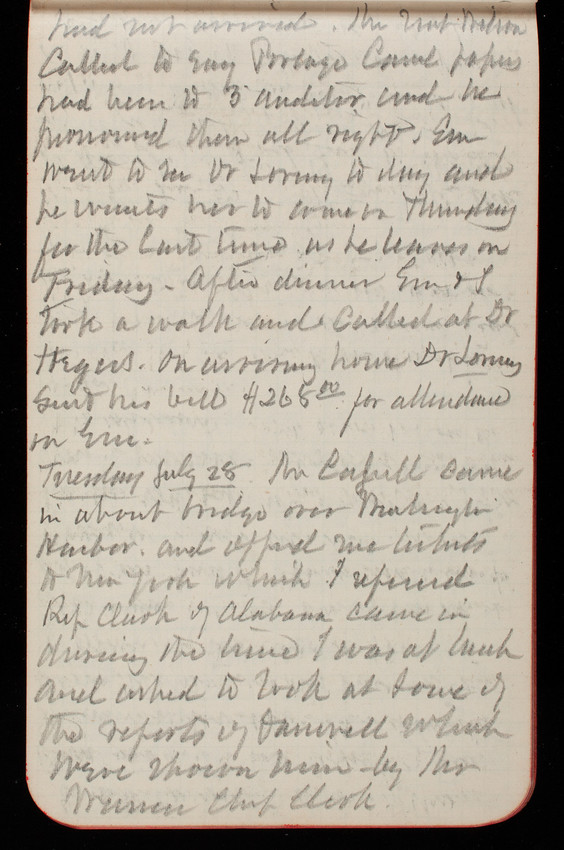 had not arrived. Mr
Called to say Portage Canal papers
had been to 3 auditor and he
pronounced them all right. Em
went to see Dr Loring to day and
he wants her to come on Thursday
for the last time as he leaves on
Friday - After dinner Em & I
took a walk and called at Dr
Hegers. On arriving home Dr Loring
sent his bill $268.00 for attendance
on Em.
Tuesday July 28 Mr came
in about bridge over Washington
Harbor. and offered me tickets
to New York which I refused
Rep Clark of Alabama came in
during the time I was at lunch
and asked to look at some of
the reports of Damrell which
were shown him by Mr
Warren Chief Clerk.